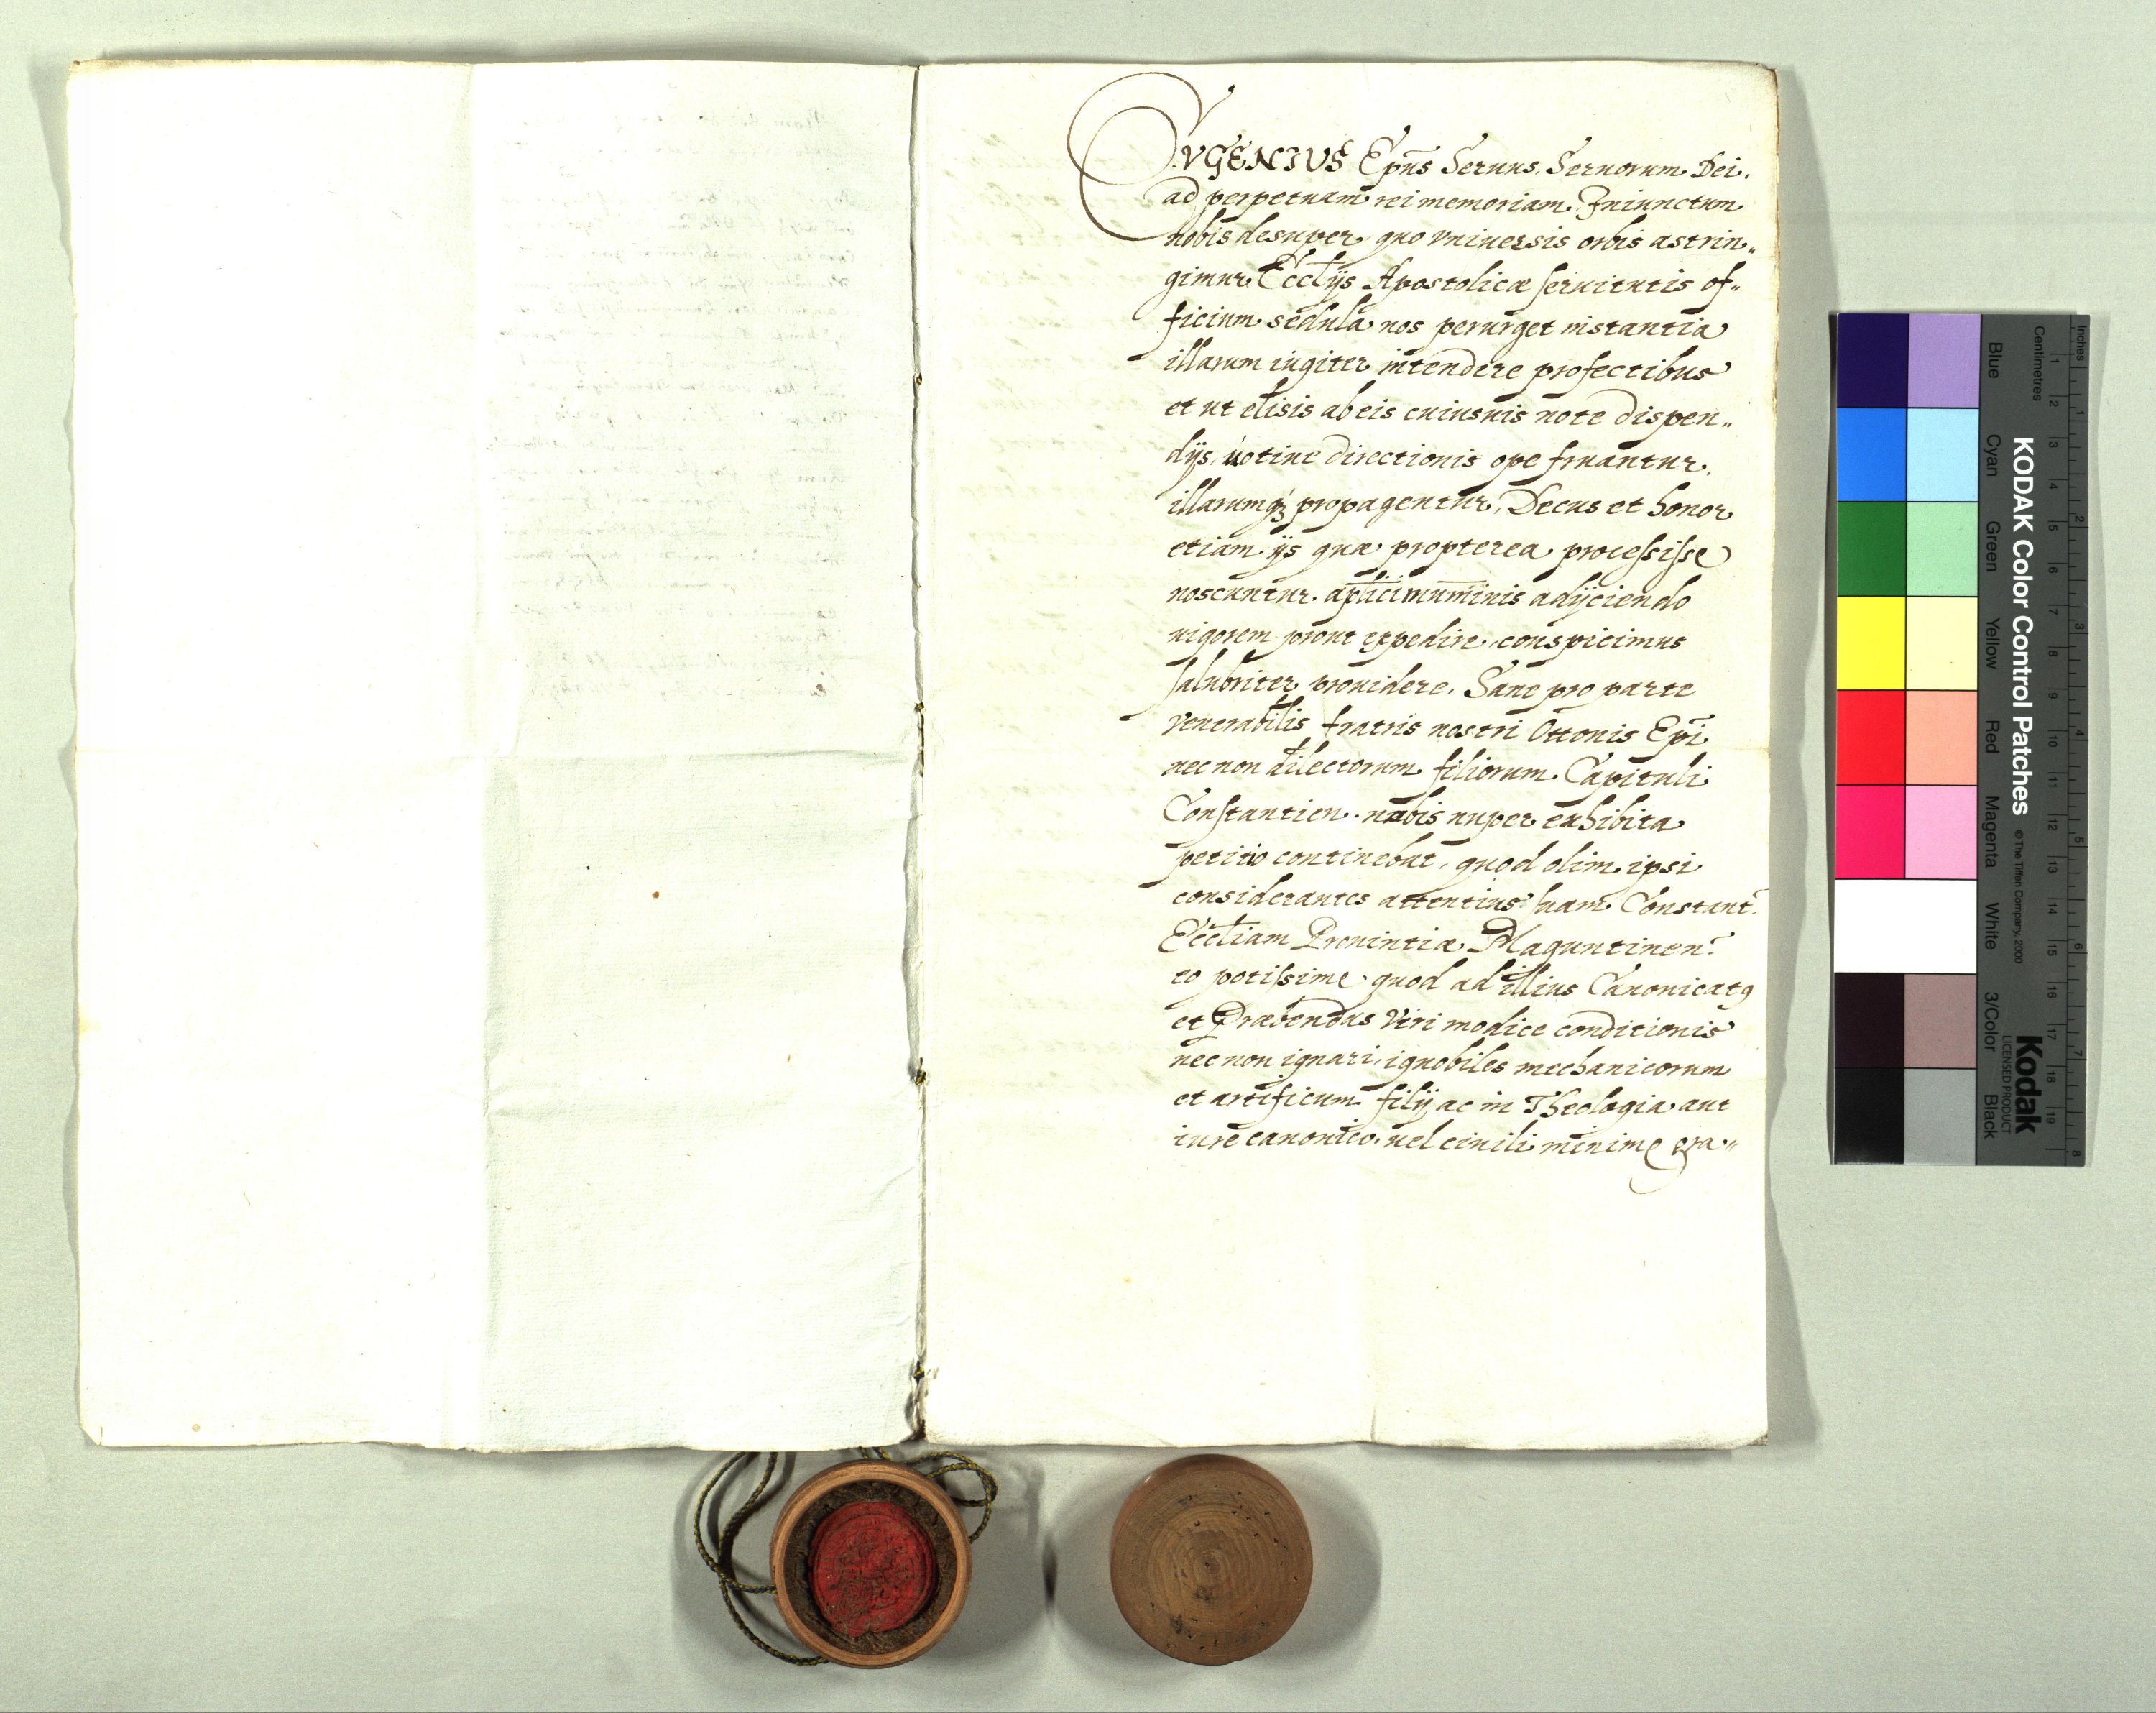 EVGENIVS Ep̃us Seruus Seruorum Dei,
ad perpetuam rei memoriam. Iniunctum
nobis desuper, quo vniuersis orbis astrin„
gimur Eccl̃ijs Apostolicæ seruitutis of„
ficium sedula nos perurget instantia
illarum iugiter intendere profectibus
et ut elisis ab eis cuiusuis note dispen„
dijs, uotiue directionis ope fruantur,
illarumq3 propagentur, Decus et honor
etiam ijs quæ propterea processisse
noscuntur. apl̃ici muniminis adijciendo
uigorem prout expedire, conspicimus
salubriter prouidere. Sane pro parte
venerabilis fratris nostri Ottonis Ep̃i
nec non dilectorum filiorum Capituli
Constantien. nobis nuper exhibita
petitio continebat, quod olim ipsi
considerantes attentius suam Constant.
Eccl̃iam Prouintiæ Maguntinen.
eo potissime quod ad illius Canonicatq
et Præbendas Viri modice conditionis
nec non ignari, ignobiles mechanicorum
et artificum filij ac in Theologia aut
iure canonico uel ciuili minime gra„
KODAK Color Control Patches
© The Tiffen Company, 2000
Kodak
LICENSED PRODUCT
Inches
Centimetres
Blue
Cyan
Green
Yellow
Red
Magenta
White
3/Color
Black
1 2 3 4 5 6 7 8
1 2 3 4 5 6 7 8 9 10 11 12 13 14 15 16 17 18 19